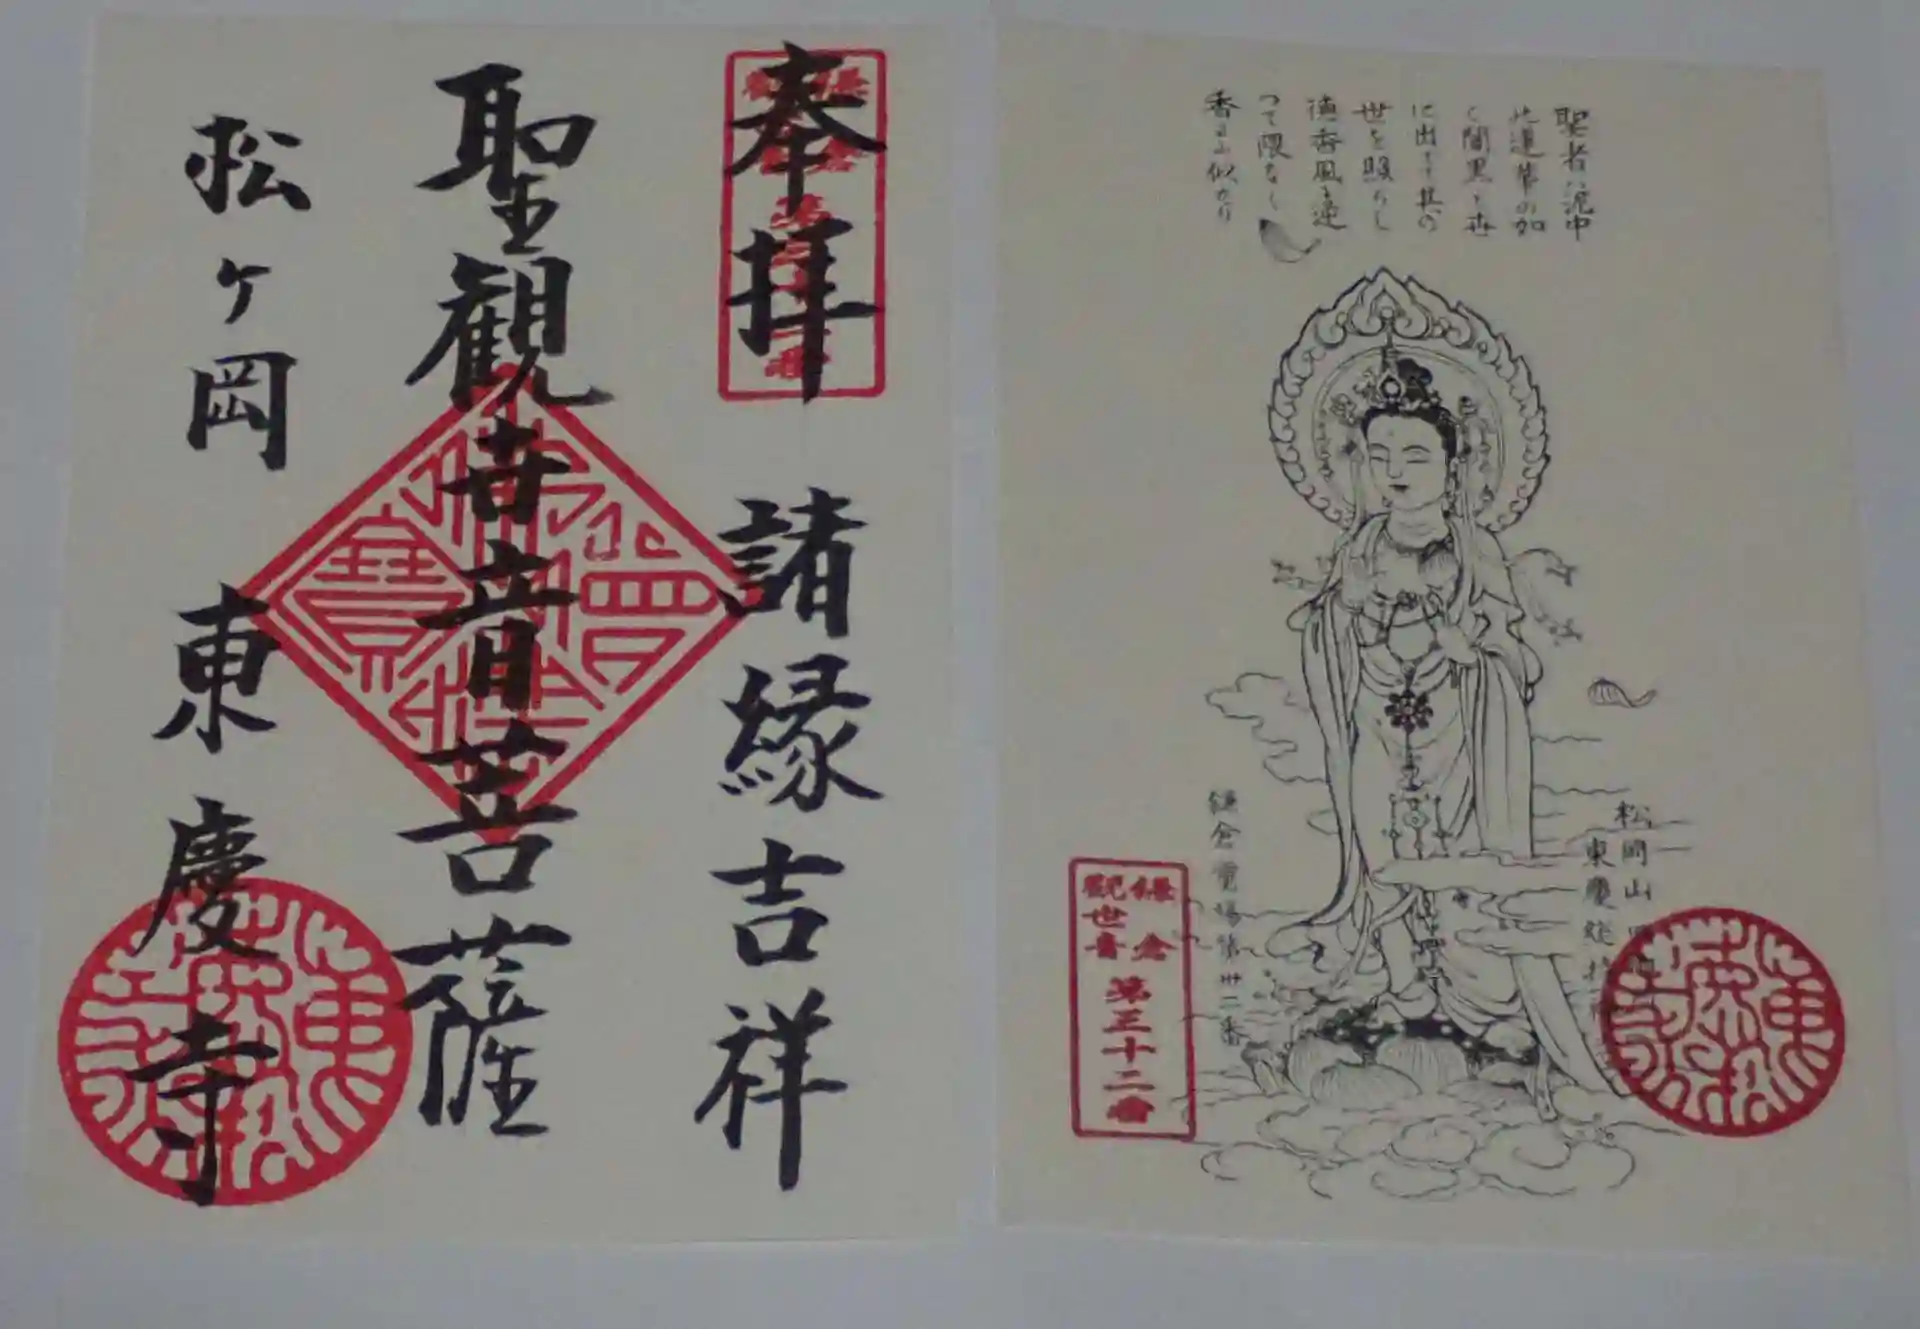 奉拝 諸縁吉祥
聖観世音菩薩
松ヶ岡 東慶寺
聖者泥中
蓮華の如
く闇黒
に出でて其の
世を照らし
徳香風に逆
つて隈なく
香ふに似たり
松岡山
東慶総持
鎌倉霊場第卅二番
鎌倉
觀世音
第三十二番